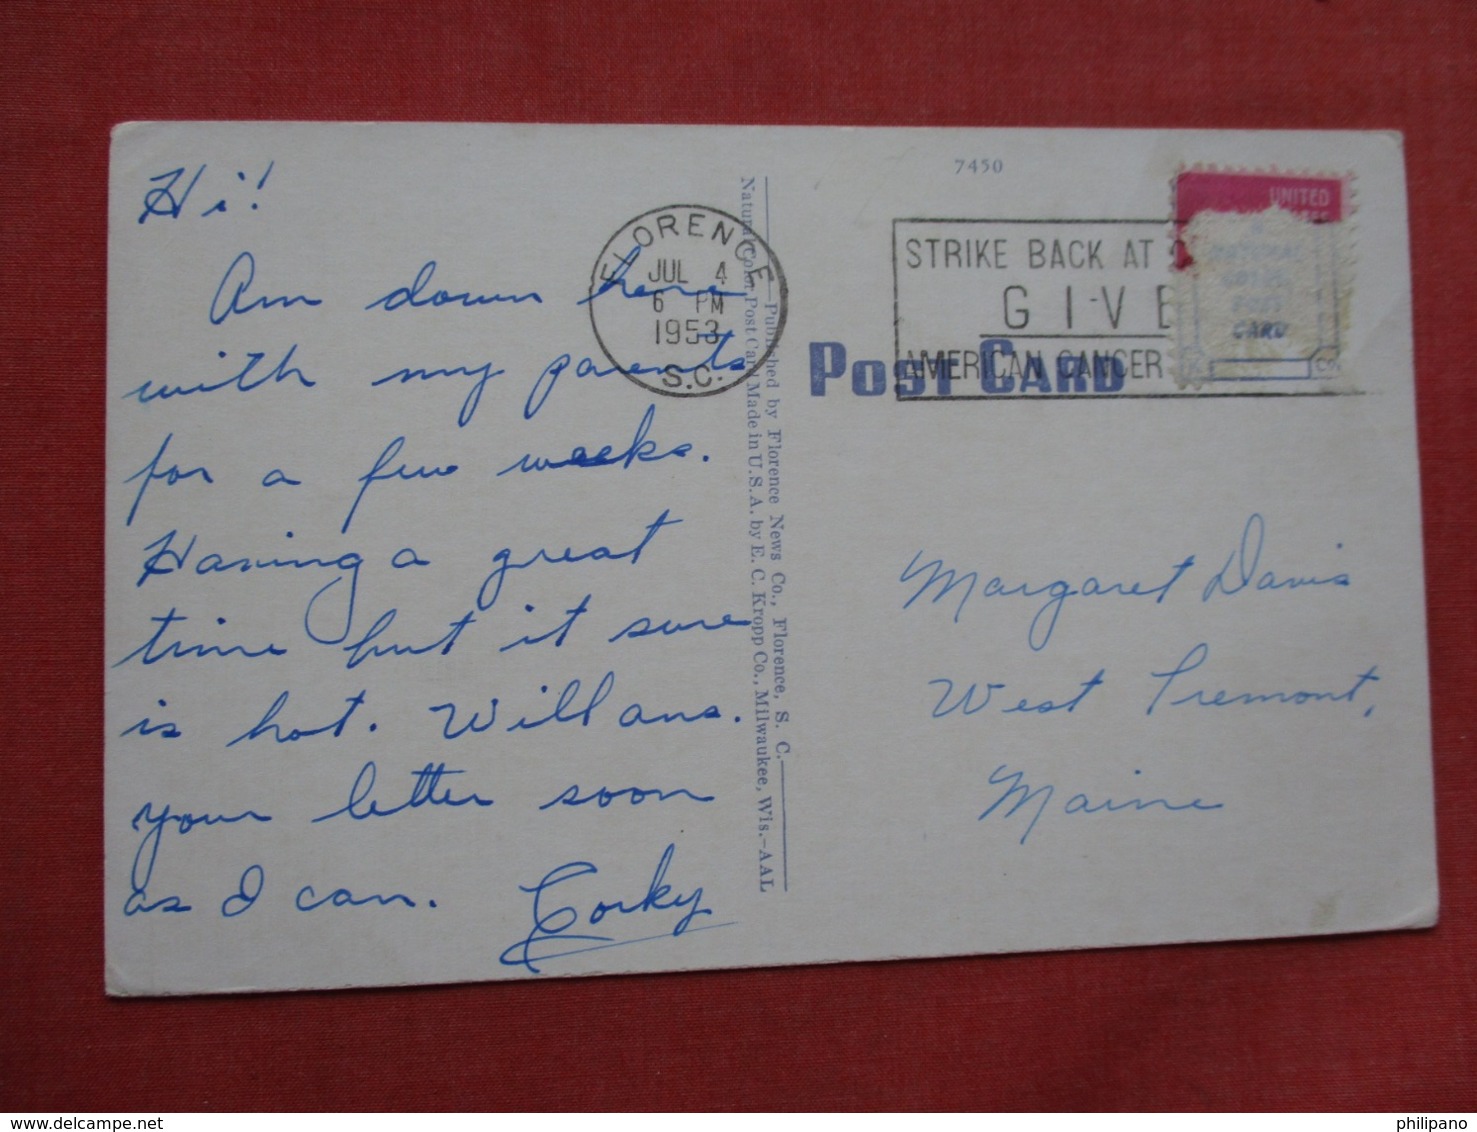 Hi!
Am down here
with my parents
for a few weeks.
Having a great
time but it sure
is hot. Will ans.
your letter soon
as I can. Corky
FLORENCE
JUL 4
6 PM
1953
S.C.
Published by Florence News Co., Florence, S. C.
Natural Color Post Card Made in U.S.A. by E. C. Kropp Co., Milwaukee, Wis.-AAL
7450
STRIKE BACK AT
GIVE
AMERICAN CANCER
UNITED
POST
CARD
POST CARD
Margaret Davis
West Tremont,
Maine
philipano